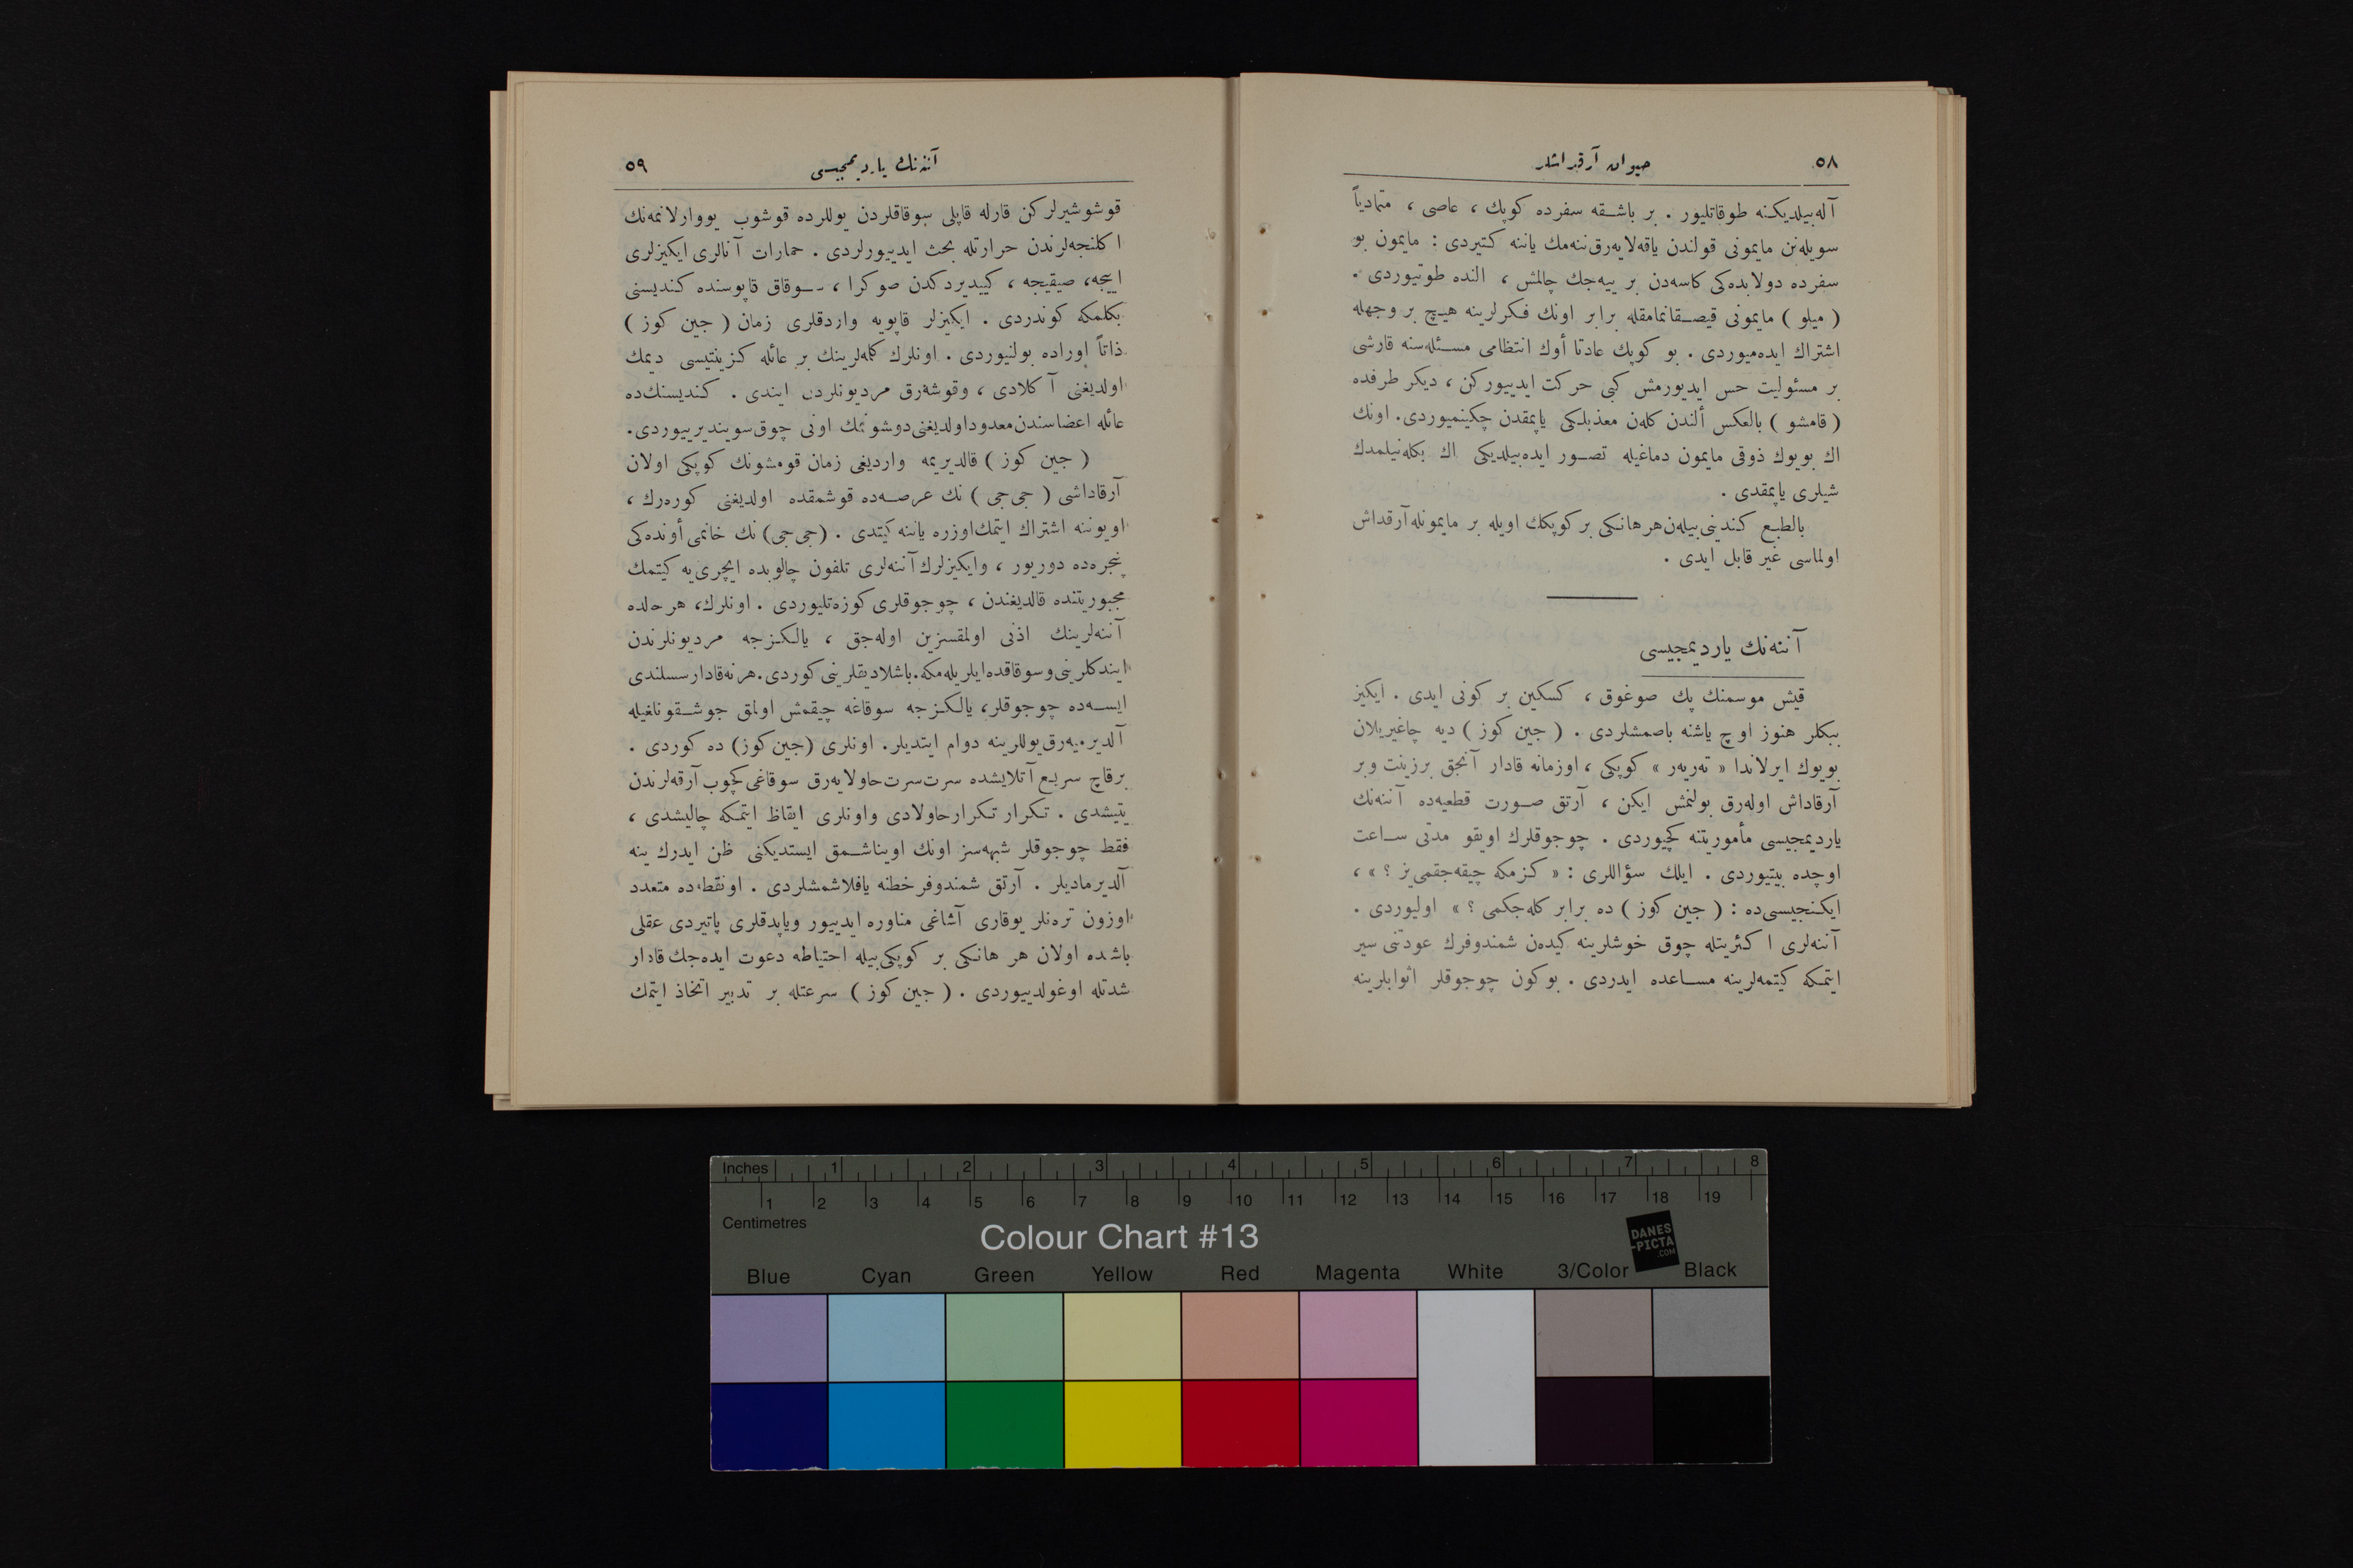 ٥٨
حيوان آرقداشلر
آله‌بيلديكنه طوقاتليور . بر باشقه سفرده كوپك ، عاصى ، متمادياً
سويله‌نن مايمونى قولندن ياقه‌لايه‌رق ننه‌مك ياننه كتيردى : مايمون بو
سفرده دولابده‌كى كاسه‌دن بر ييه‌جك چالمش ، النده طوتيوردى .
( ميلو ) مايمونى قيصقانمامقله برابر اونك فكرلرينه هيچ بر وجهله
اشتراك ايده‌ميوردى . بو كوپك عادتا أوك انتظامى مسئله‌سنه قارشى
بر مسئوليت حس ايديورمش كبى حركت ايدييوركن ، ديكر طرفده
( قامشو ) بالعكس ألندن كلن معذبلكى ياپمقدن چكينميوردى. اونك
اك بويوك ذوقى مايمون دماغيله تصور ايده‌بيلديكى اك بكله‌نيلمدك
شيلرى ياپمقدى .
بالطبع كندينى بيله‌ن هر هانكى بر كوپكك اويله بر مايمونله آرقداش
اولماسى غير قابل ايدى .
آننه‌نك يارديمجيسى
قيش موسمنك پك صوغوق ، كسكين بر كونى ايدى . ايكيز
ببكلر هنوز اوچ ياشنه باصمشلردى . ( جين كوز ) ديه چاغيريلان
بويوك ايرلاندا « ته‌ريه‌ر » كوپكى ، اوزمانه قادار آنجق برزينت وبر
آرقاداش اوله‌رق بولنمش ايكن ، آرتق صورت قطعيه‌ده آننه‌نك
يارديمجيسى مأموريتنه كچيوردى . چوجوقلرك اويقو مدتى ساعت
اوچده بيتيوردى . ايلك سؤاللرى : « كزمكه چيقه‌جقمى‌يز ؟ » ،
ايكنجيسى‌ده : ( جين كوز ) ده برابر كله‌جكمى ؟ » اوليوردى .
آننه‌لرى اكثريتله چوق خوشلرينه كيده‌ن شمندوفرك عودتنى سير
ايتمكه كيتمه‌لرينه مساعده ايدردى . بوكون چوجوقلر اثوابلرينه
آننه‌نك يارديمجيسى
٥٩
قوشوشيرلركن قارله قاپلى سوقاقلردن يوللرده قوشوب يووارلانمه‌نك
اكلنجه‌لرندن حرارتله بحث ايدييورلردى . حمارات آنالرى ايكيزلرى
اييجه، صيقيجه ، كييديردكدن صوكرا ، سوقاق قاپوسنده كنديسنى
بكلمكه كوندردى . ايكيزلر قاپويه واردقلرى زمان ( جين كوز )
ذاتاً اوراده بولنيوردى . اونلرك كلمه‌لرينك بر عائله كزينتيسى ديمك
اولديغنى آكلادى ، وقوشه‌رق مرديونلردن ايندى . كنديسنك‌ده
عائله اعضاسندن معدود اولديغنى دوشونمك اونى چوق سوينديرييوردى.
( جين كوز ) قالديريمه وارديغى زمان قومشونك كوپكى اولان
آرقاداشى ( جى‌جى ) نك عرصه‌ده قوشمقده اولديغنى كوره‌رك ،
اويوننه اشتراك ايتمك اوزره ياننه كيتدى . (جى‌جى) نك خانمى أونده‌كى
پنجره‌ده دوريور ، وايكيزلرك آننه‌لرى تلفون چالوبده ايچرى‌يه كيتمك
مجبوريتنده قالديغندن ، چوجوقلرى كوزه‌تليوردى . اونلرك، هر حالده
آننه‌لرينك اذنى اولمقسزين اوله‌جق ، يالكزجه مرديونلرندن
ايندكلرينى وسوقاقده ايلريله‌مكه باشلاديقلرينى كوردى. هرنه‌قادار سسلندى
ايسه‌ده چوجوقلر، يالكزجه سوقاغه چيقمش اولمق جوشقونلغيله
آلديرميه‌رق يوللرينه دوام ايتديلر. اونلرى (جين كوز) ده كوردى .
برقاچ سريع آتلايشده سرت سرت حاولايه‌رق سوقاغى كچوب آرقه‌لرندن
يتيشدى . تكرار تكرار حاولادى واونلرى ايقاظ ايتمكه چاليشدى ،
فقط چوجوقلر شبهه‌سز اونك اويناشمق ايستديكنى ظن ايدرك ينه
آلديرماديلر . آرتق شمندوفر خطنه ياقلاشمشلردى . اونقطه‌ده متعدد
اوزون تره‌نلر يوقارى آشاغى مناوره ايدييور وياپدقلرى پاتيردى عقلى
باشده اولان هر هانكى بر كوپكى بيله احتياطه دعوت ايده‌جك قادار
شدتله اوغولدييوردى . ( جين كوز ) سرعتله بر تدبير اتخاذ ايتمك
Inches 1 2 3 4 5 6 7 8
1 2 3 4 5 6 7 8 9 10 11 12 13 14 15 16 17 18 19
Centimetres
Colour Chart #13
DANES
-PICTA
.COM
Blue Cyan Green Yellow Red Magenta White 3/Color Black